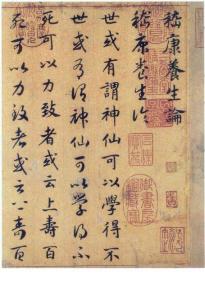 嵇康養生論
嵇康養生論
世或有謂神仙可以學得不
世或有謂神仙可以學得不
死可以力致者或云上壽百
死可以力致者或云上壽百